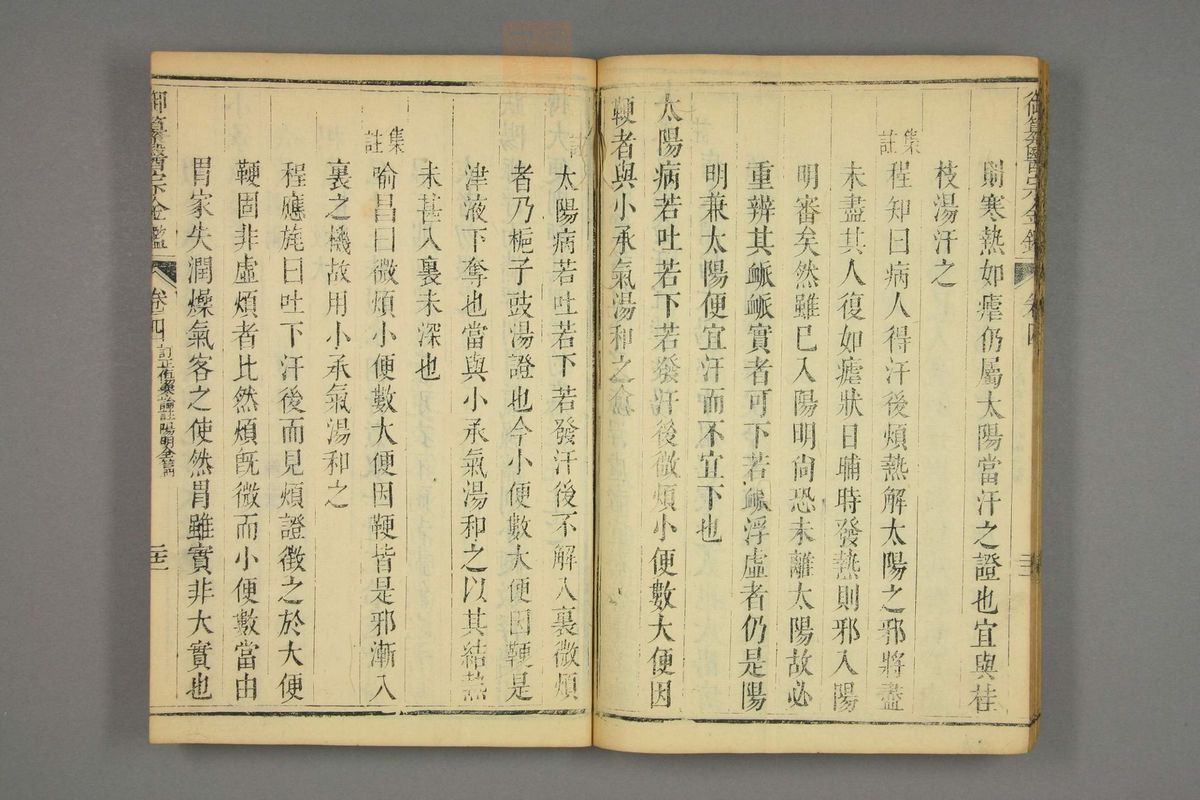 御纂醫宗金鑑 卷四
則寒熱如瘧仍屬太陽當汗之證也宜與桂
枝湯汗之
集註程知曰病人得汗後煩熱解太陽之邪將盡
未盡其人復如瘧狀日晡時發熱則邪入陽
明審矣然雖已入陽明尙恐未離太陽故必
重辨其脈脈實者可下若脈浮虛者仍是陽
明兼太陽便宜汗而不宜下也
太陽病若吐若下若發汗後微煩小便數大便因
鞕者與小承氣湯和之愈
太陽病若吐若下若發汗後不解入裏微煩
者乃梔子豉湯證也今小便數大便因鞕是
津液下奪也當與小承氣湯和之以其結熱
未甚入裏未深也
集註喻昌曰微煩小便數大便因鞕皆是邪漸入
裏之機故用小承氣湯和之
程應旄曰吐下汗後而見煩證徵之於大便
鞕固非虛煩者比然煩旣微而小便數當由
胃家失潤燥氣客之使然胃雖實非大實也
御纂醫宗金鑑 卷四 訂正傷寒論註陽明全篇